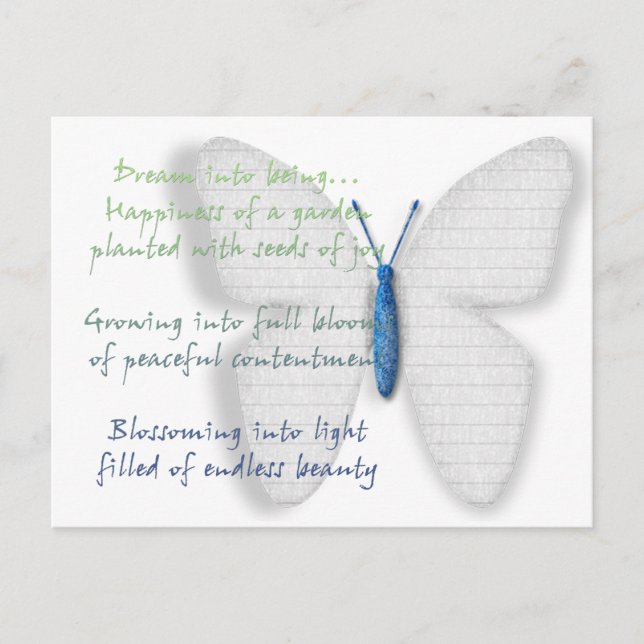 Dream into being...
Happiness of a garden
planted with seeds of joy
Growing into full bloom
of peaceful contentment
Blossoming into light
filled of endless beauty